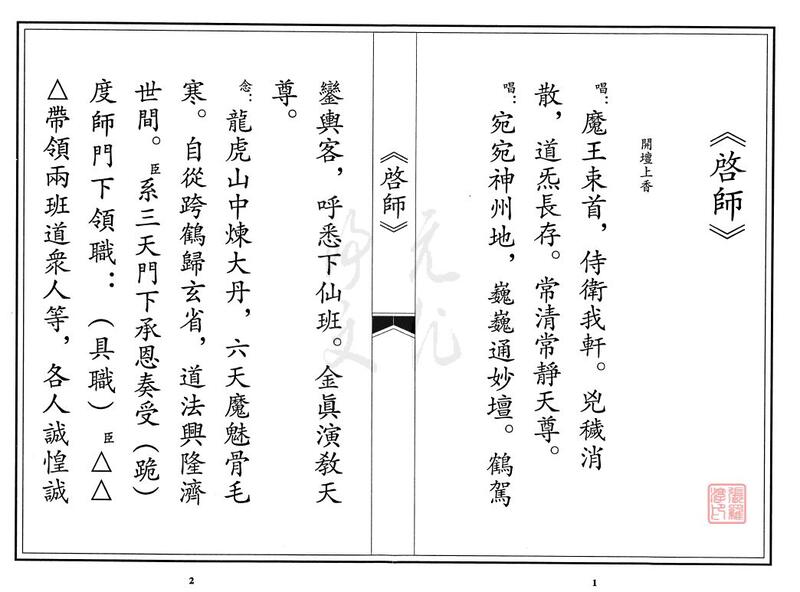 《啓師》
開壇上香
唱：魔王束首，侍衛我軒。凶穢消
散，道炁長存。常清常靜天尊。
唱：宛宛神州地，巍巍通妙壇。鶴駕
1
《啓師》
鑾輿客，呼悉下仙班。金眞演敎天
尊。
念：龍虎山中煉大丹，六天魔魅骨毛
寒。自從跨鶴歸玄省，道法興隆濟
世間。臣系三天門下承恩奏受（跪）
度師門下領職：（具職）臣△△
△帶領兩班道衆人等，各人誠惶誠
2